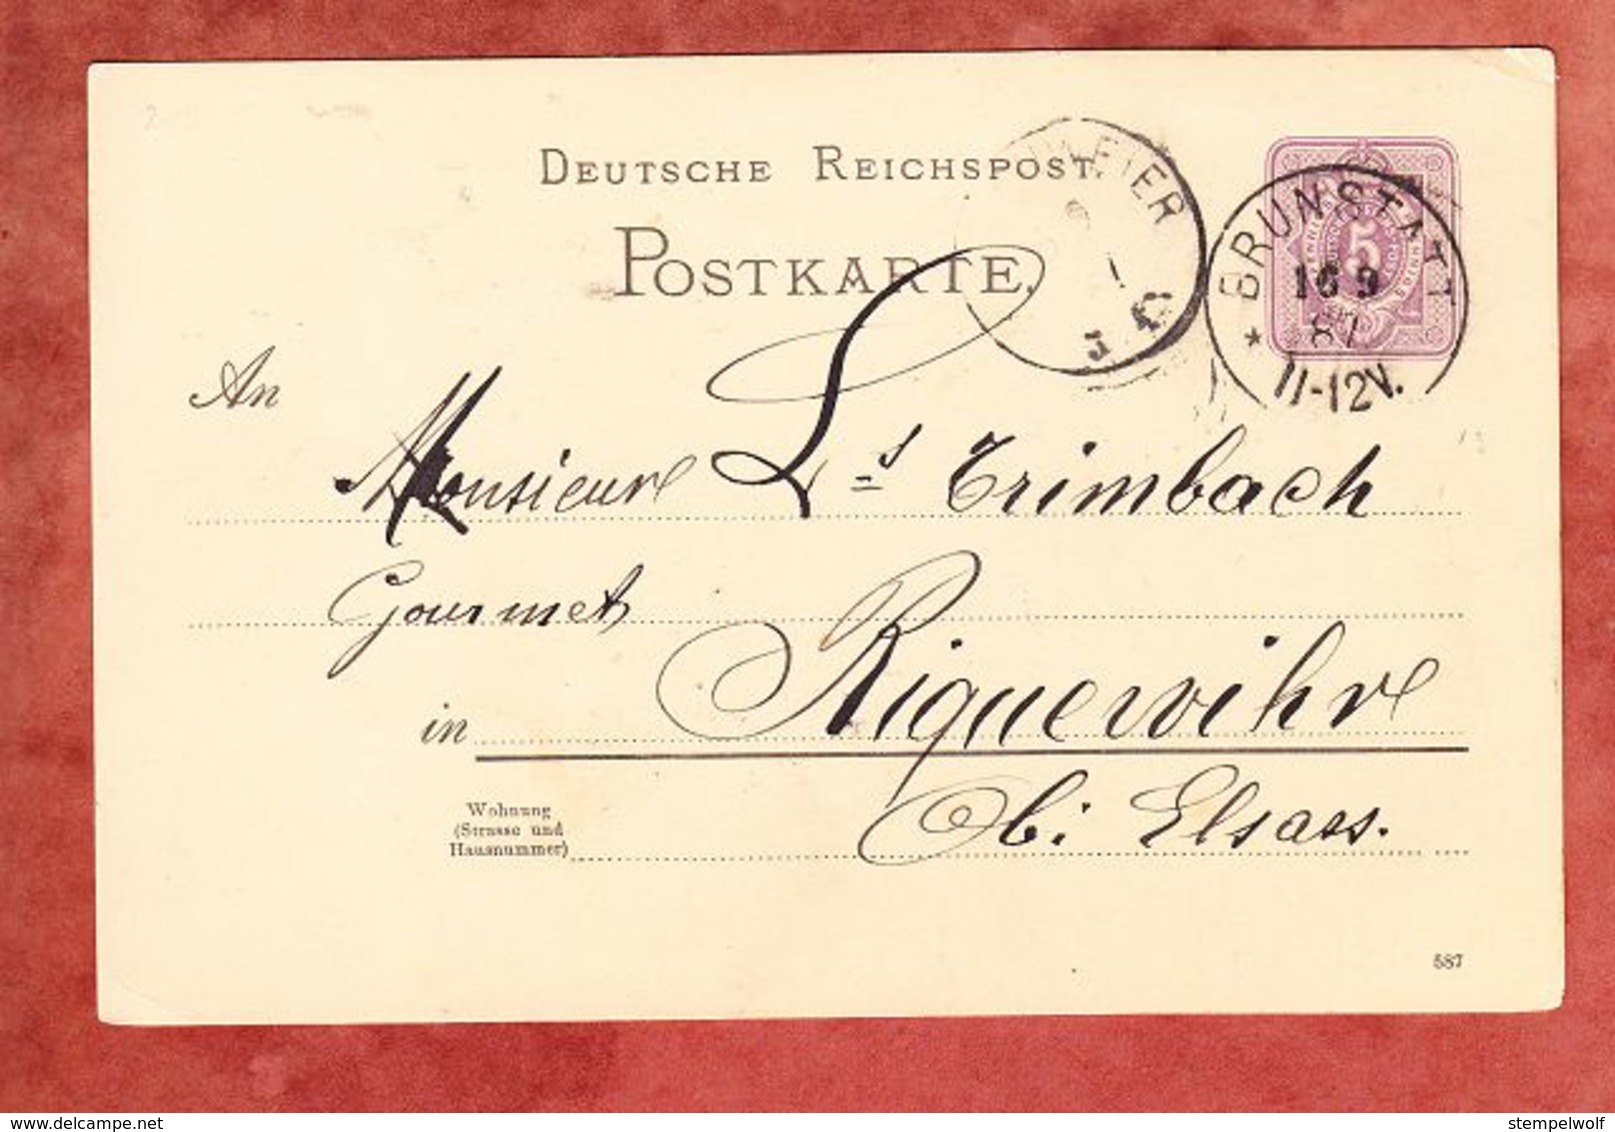 DEUTSCHE REICHSPOST.
POSTKARTE.
BRUNSTATT
16 9
87
11-12V.
5
An
Monsieur Ls Trimbach
Gourmet
in Riquewihr
Ob: Elsass.
Wohnung
(Strasse und
Hausnummer)
587
www.delcampe.net
stempelwolf